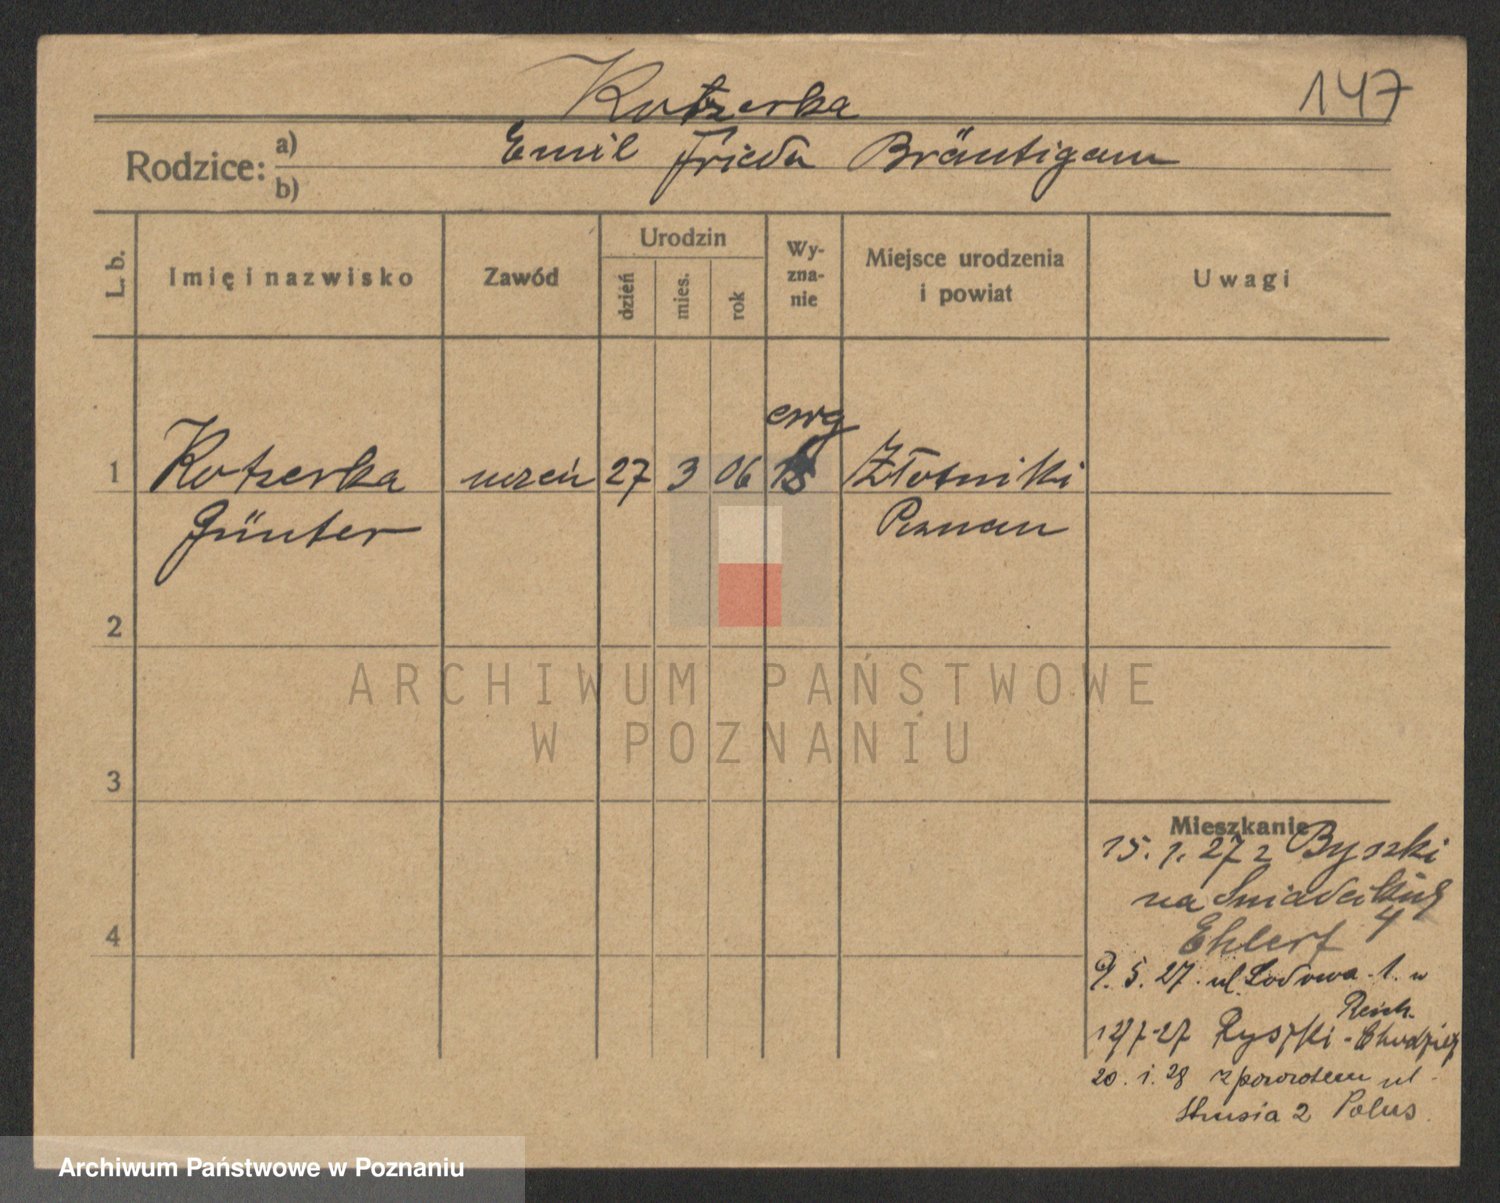 Kotzerka
147
Rodzice: a) Emil Frieda Bräutigam
b)
L. b.
Imię i nazwisko
Zawód
Urodzin
dzień
mies.
rok
Wy-
zna-
nie
Miejsce urodzenia
i powiat
Uwagi
ewg
1 Kotzerka uczeń 27 3 06 Złotniki
Günter Poznan
2
3
4
Mieszkanie
15. 1. 27 z Byszki
na Sniadeckich
Ehlert 4
9. 5. 27. ul Lodowa 1. u
Reich
12/7-27 Ryszki - Chodzież
20. 1. 28 z powrotem ul.
Strusia 2 Polus.
ARCHIWUM PAŃSTWOWE
W POZNANIU
Archiwum Państwowe w Poznaniu